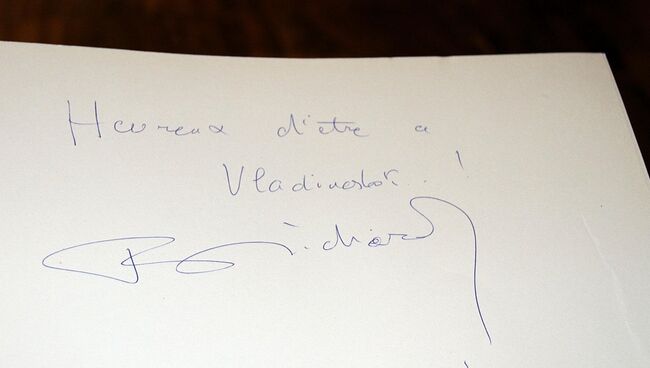 Heureux d'être a
Vladivostok..!
Richard